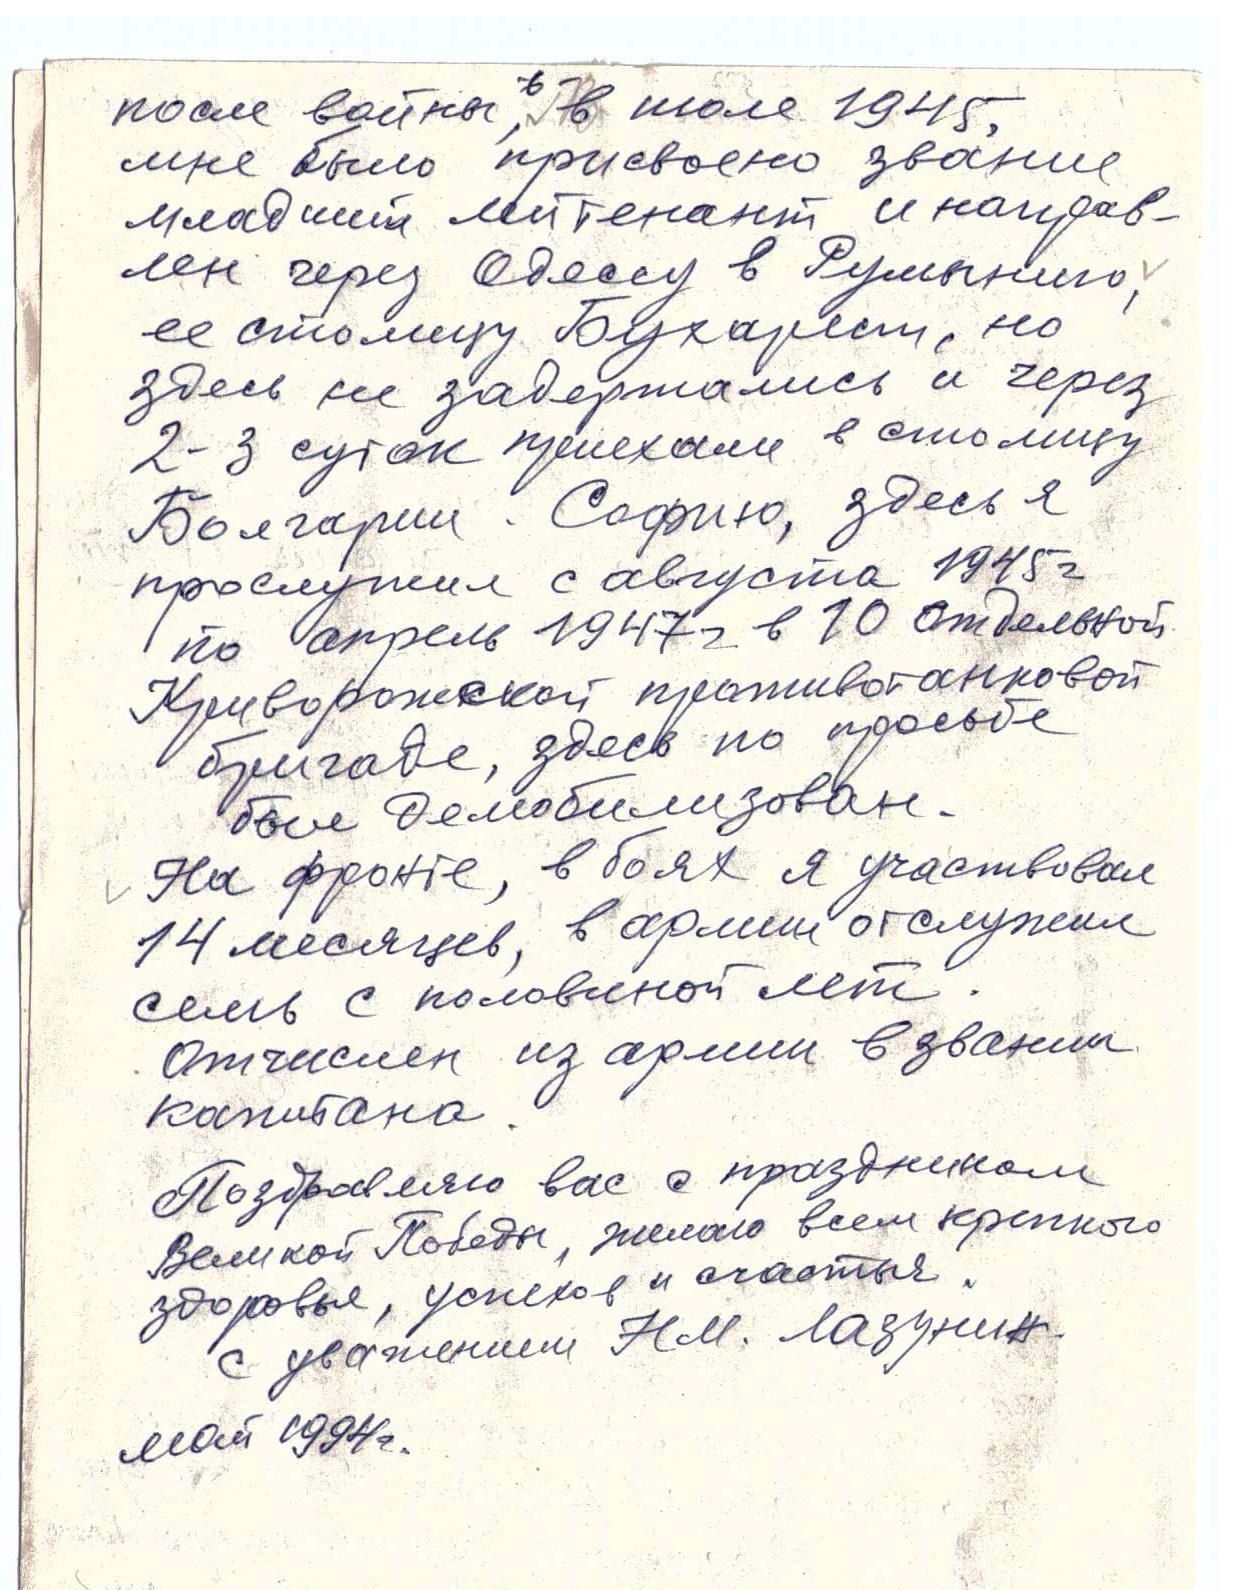 после войны, в июле 1945,
мне было присвоено звание
младший лейтенант и направ-
лен через Одессу в Румынию,
ее столицу Бухарест, но
здесь не задержались и через
2-3 суток приехали в столицу
Болгарии. Софию, здесь я
прослужил с августа 1945г
по апрель 1947г в 10 отдельной
Криворожской противотанковой
бригаде, здесь по просьбе
был демобилизован.
На фронте, в боях я участвовал
14 месяцев, в армии отслужил
семь с половиной лет.
Отчислен из армии в звании
капитана.
Поздравляю вас с праздником
Великой Победы, желаю всем крепкого
здоровья, успехов и счастья.
с уважением Н.М. Лазунин.
май 1994г.